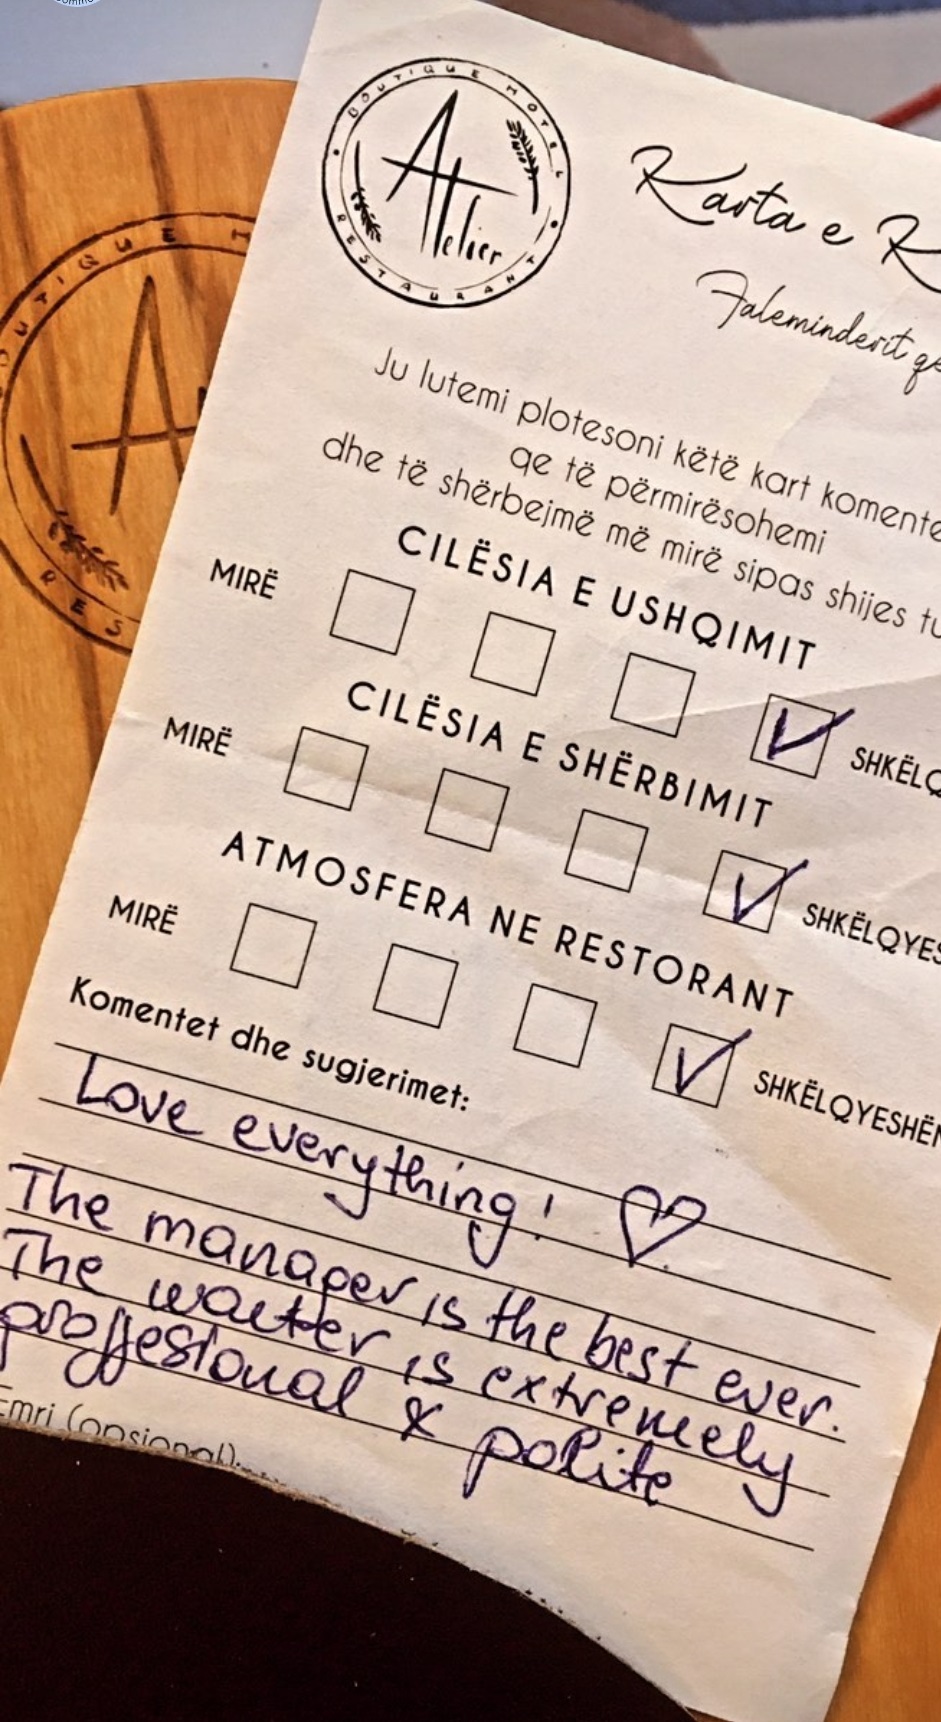 BOUTIQUE HOTEL
Atelier
RESTAURANT
BOUTIQUE
Karta e K
Faleminderit qe
Ju lutemi plotesoni këtë kart komente
qe të përmirësohemi
dhe të shërbejmë më mirë sipas shijes tu
CILËSIA E USHQIMIT
MIRË SHKËLQ
CILËSIA E SHËRBIMIT
MIRË SHKËLQYES
ATMOSFERA NE RESTORANT
MIRË SHKËLQYESHËM
Komentet dhe sugjerimet:
Love everything!
The manager is the best ever.
The waiter is extremely
proffesional & polite
Emri (opsional)